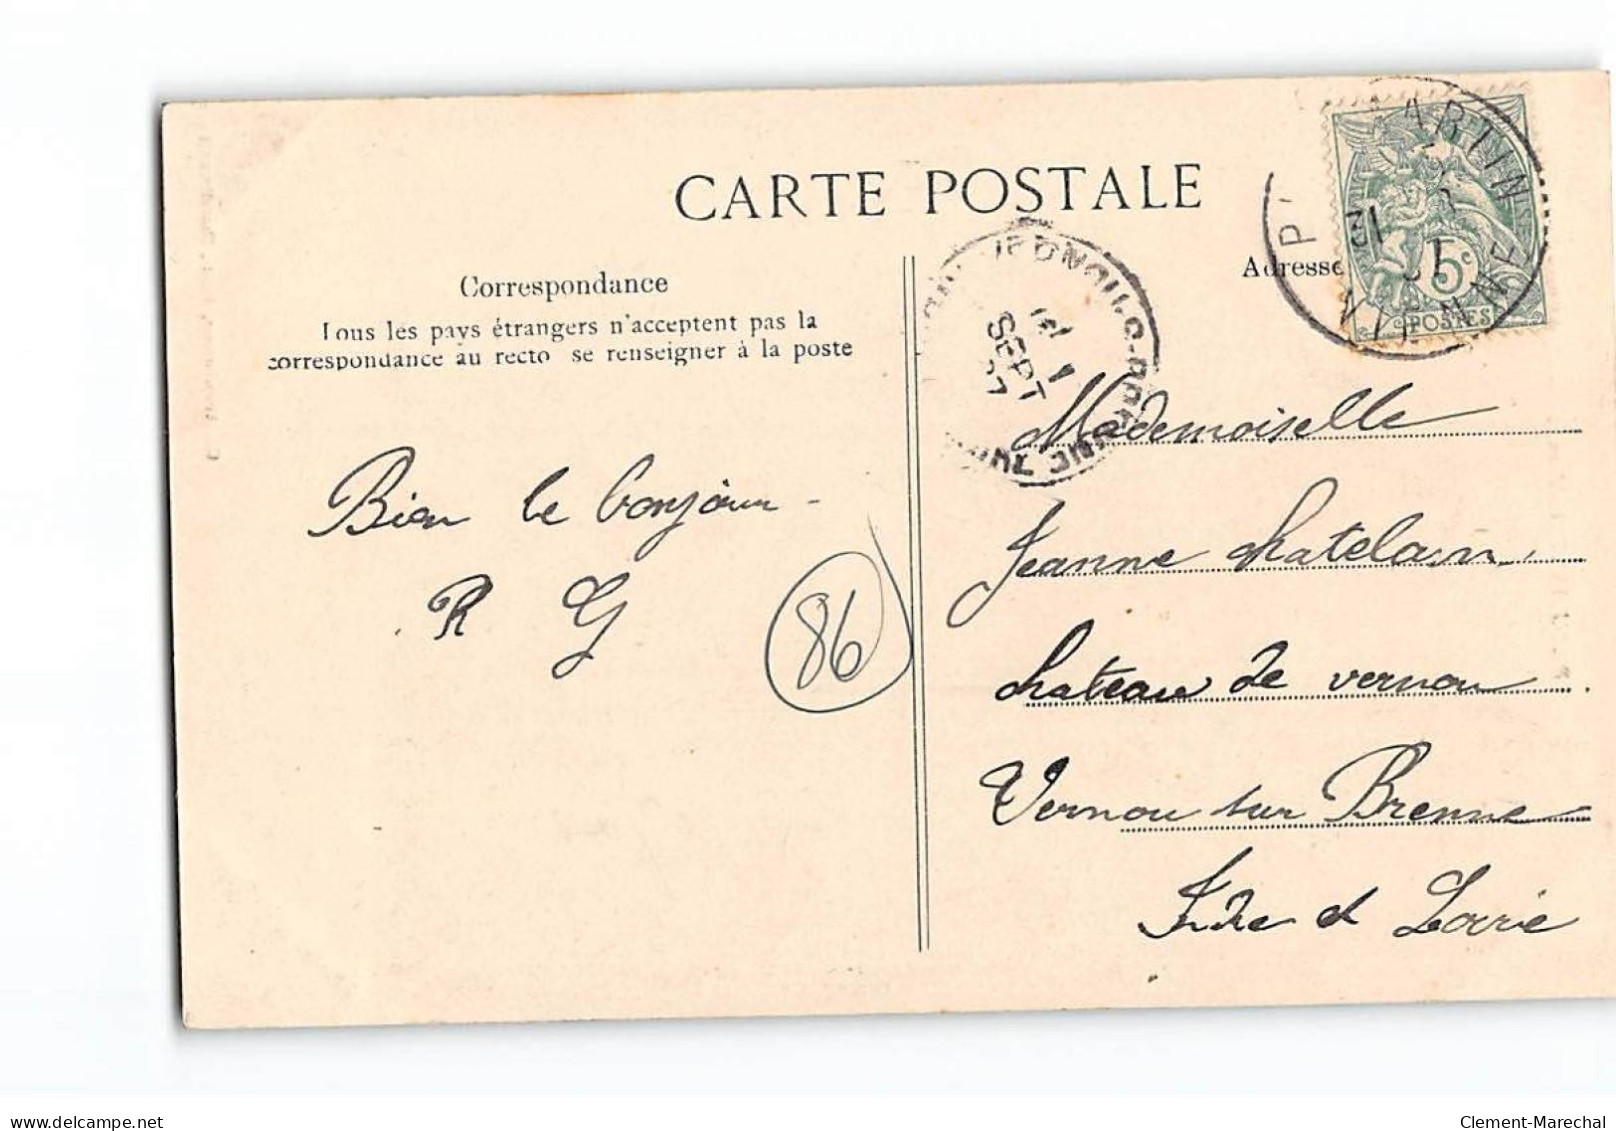 CARTE POSTALE
Correspondance
Tous les pays étrangers n'acceptent pas la
correspondance au recto se renseigner à la poste
Adresse
ARTIN
31
VIENNE
5c
POSTES
SEPT
07
Bien le bonjour -
R G
86
Mademoiselle
Jeanne chatelain
chateau de vernou
Vernou sur Brenne
Indre et Loire
delcampe.net
Clement-Marechal